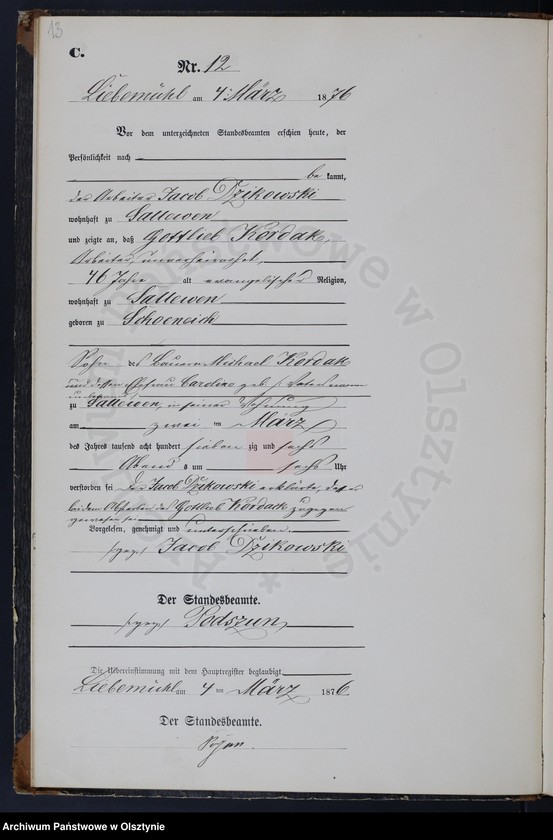 13
C.
Nr. 12
Liebemühl am 4 März 1876
Vor dem unterzeichneten Standesbeamten erschien heute, der
Persönlichkeit nach
be kannt,
der Arbeiter Jacob Dzikowski
wohnhaft zu Sallewen
und zeigte an, daß Gottlieb Kordak,
Arbeiter, unverheirathet,
46 Jahre alt evangelischer Religion,
wohnhaft zu Sallewen
geboren zu Schoeneich
Sohn des Bauern Michael Kordak
und dessen Ehefrau Caroline geb.
zu Sallewen, in seiner Wohnung
am zwei ten März
des Jahres tausend acht hundert sieben zig und sechs
Abend s um sechs Uhr
verstorben sei. Der Jacob Dzikowski erklärte, daß er
bei dem Absterben des Gottlieb Kordack zugegen
gewesen sei
Vorgelesen, genehmigt und unterschrieben.
gez. Jacob Dzikowski
Der Standesbeamte.
gez. Podszun
Die Uebereinstimmung mit dem Hauptregister beglaubigt
Liebemühl am 4 ten März 1876
Der Standesbeamte.
Archiwum Państwowe w Olsztynie
Archiwum Państwowe w Olsztynie